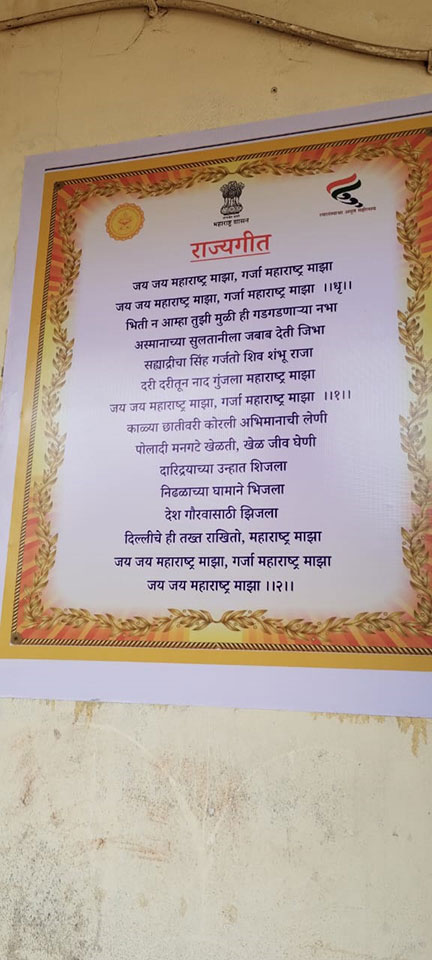 महाराष्ट्र शासन
स्वातंत्र्याचा अमृत महोत्सव
राज्यगीत
जय जय महाराष्ट्र माझा, गर्जा महाराष्ट्र माझा
जय जय महाराष्ट्र माझा, गर्जा महाराष्ट्र माझा ।।धृ।।
भिती न आम्हा तुझी मुळी ही गडगडणाऱ्या नभा
अस्मानाच्या सुलतानीला जबाब देती जिभा
सह्याद्रीचा सिंह गर्जतो शिव शंभू राजा
दरी दरीतून नाद गुंजला महाराष्ट्र माझा
जय जय महाराष्ट्र माझा, गर्जा महाराष्ट्र माझा ।।१।।
काळ्या छातीवरी कोरली अभिमानाची लेणी
पोलादी मनगटे खेळती, खेळ जीव घेणी
दारिद्रयाच्या उन्हात शिजला
निढळाच्या घामाने भिजला
देश गौरवासाठी झिजला
दिल्लीचे ही तख्त राखितो, महाराष्ट्र माझा
जय जय महाराष्ट्र माझा, गर्जा महाराष्ट्र माझा
जय जय महाराष्ट्र माझा ।।२।।